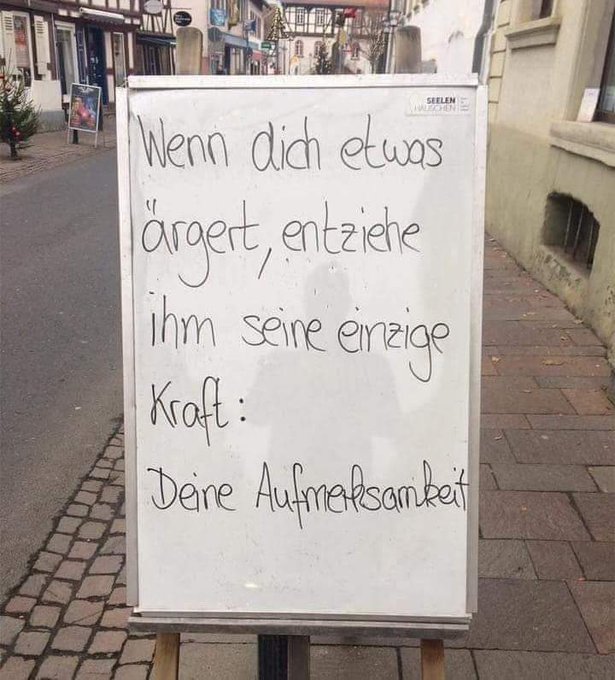 SEELEN
HÄUSCHEN
Wenn dich etwas
ärgert, entziehe
ihm seine einzige
Kraft:
Deine Aufmerksamkeit